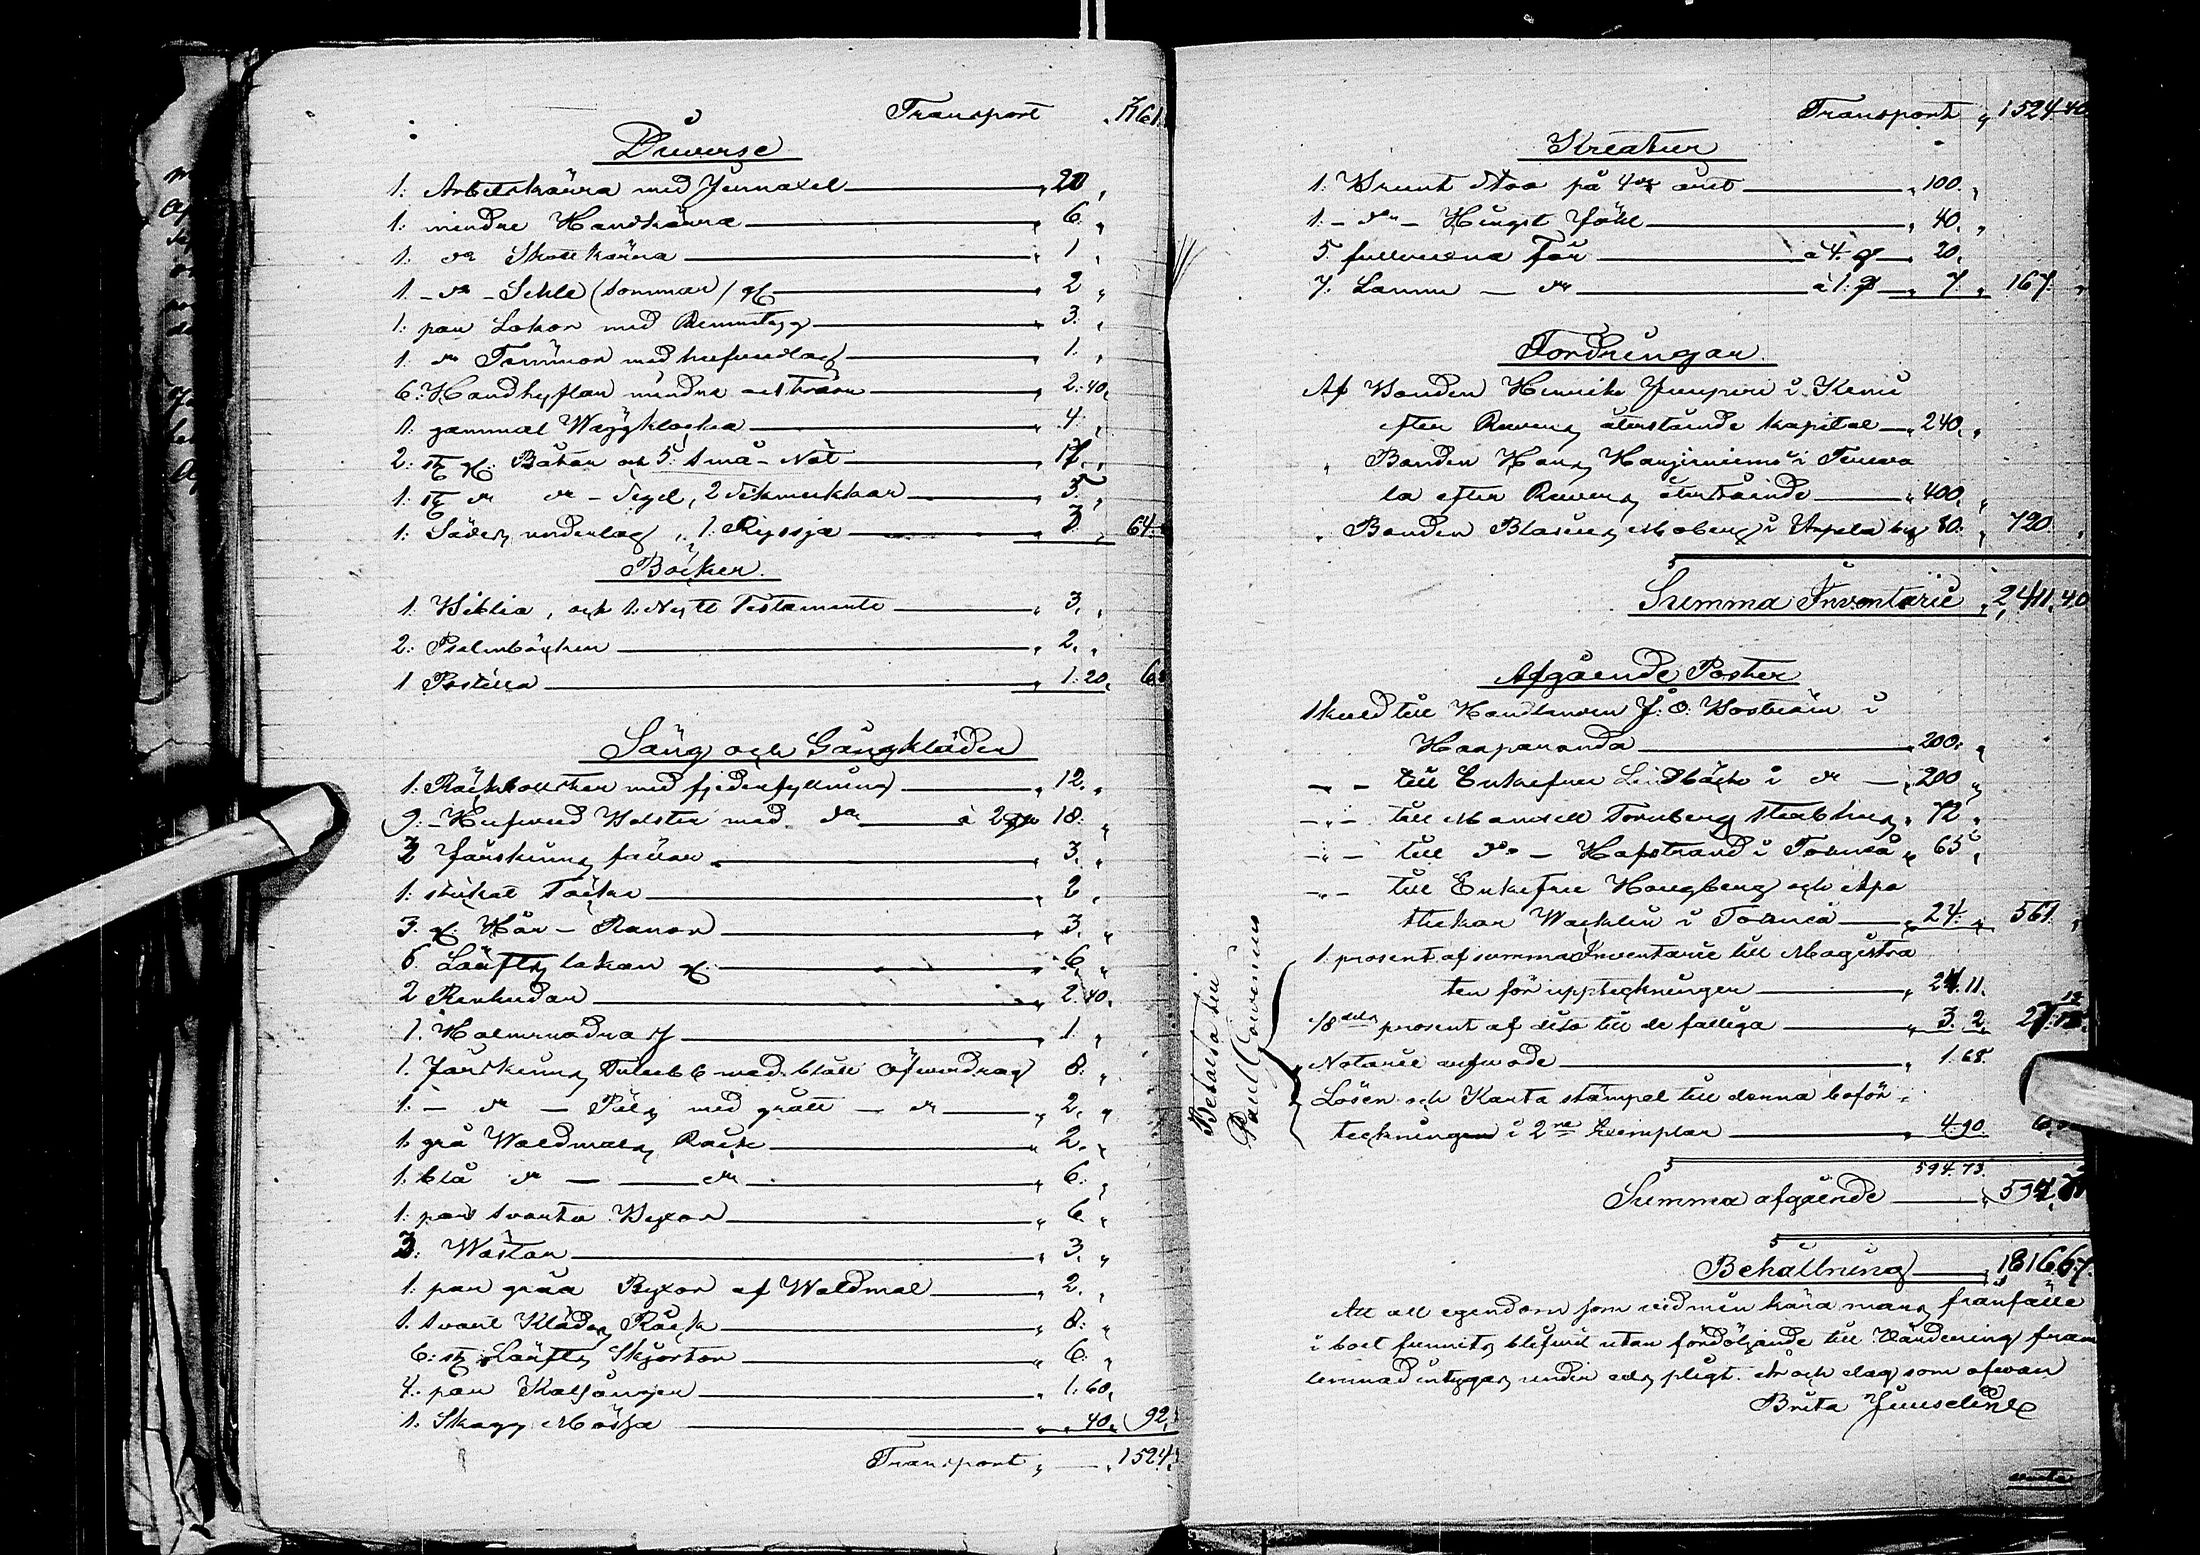 Transport „ 1361
Diverse
1: Arbetskärra med Jernaxel „ 20 „
1: mindre Handkärra „ 6. „
1: do Skottkärra „ 1 „
1 - do - Schle (sommar) gl. „ 2 „
1: par Lokor med Remmtyg „ 3. „
1: do Tömmor med hufvudlag „ 1. „
6: Handhyflar mindre och större „ 2.40.
1: gammal Wäggklocka „ 4. „
2: st gl: Båtar och 5: små - Nöt „ 17. „
1: st do do - Segel, 2 „ 3. „
1: underlag, 1. Ryssja „ 3 „ 64.
Böcker.
1: Biblia, och 1: Nytt Testamente „ 3. „
2: Psalmböcker „ 2. „
1 Postilla „ 1.20. 6.
Säng och Gångkläder
1: Räckbolster med fjederfyllning „ 12. „
9. - Hufvud Bolster med do à 2 „ 18. „
3 fårskinns fällar „ 3. „
1: stickat Täcke „ 2. „
3. gl. Hår - Ranor „ 3. „
6. Läufts lakan gl. „ 6. „
2 Renhudar „ 2.40.
1. Halmmadrass „ 1. „
1. Fårskinns med blått öfverdrag „ 8. „
1: - do - Päls med grått - do „ 2. „
1. grå Waldmals Råck „ 2. „
1. blå do - do „ 6. „
1: par svarta Byxor „ 6. „
3: Wästar „ 3. „
1. par gråa Byxor af Waldmal „ 2. „
1. svart Klädes Råck „ 8. „
6: st Läufts Skjortor „ 6. „
4. par Kalsånger „ 1.60.
1. Skagg Mössa „ „ 40. 92.
Transport „ „ 1524.
Transport „ 1524.40
Kreatur
1. Brunt Stoo på 4de året „ 100. „
1. - do - Hingst föhl „ 40. „
5. fullvuxna Får à 4. „ 20. „
7. Lamm - do à 1. „ 7. „ 167. „
Fordringar
Af Bonden Henrik Junperi i Kemi
efter Revers återstående kapital „ 240. „
„ Bonden Hans i
la efter Revers återstående „ 400. „
„ Bonden Blasius Moberg i by 80. „ 720. „
Summa Inventarie „ 2,411.40
Afgående Poster
Skuld till Handlanden J. O. Boström i
Haaparanda „ 200. „
- „ - till Enkefru Lidbäck i do „ 200 „
- „ - till Mamsell Tornberg „ 72 „
- „ - till do - Hafstrand i Torneå „ 65. „
- „ - till Enkefru Haugberg och Apo
thekar Wacklin i Torneå „ 24. „ 561. „
1. prosent af summa Inventarie till Magistra
ten för uppteckningen „ 24.11.
1/8 dels prosent af dito till de fattiga „ 3. 2. 27.13.
Notarie arfvode „ 1.68.
Lösen och Karta stämpel till denna boför-
teckningen i 2ne Exemplar „ 4.90. 6.
Betalta till
Paul
594.73.
Summa afgående „ 594.73
Behållning „ 1816.67.
Att all egendom som vid min kära mans frånfälle
i boet funnits blifvit utan fördöljande till Värdering fram
lemnad intygas under eds pligt. År och dag som ofvan
Brita Junselius